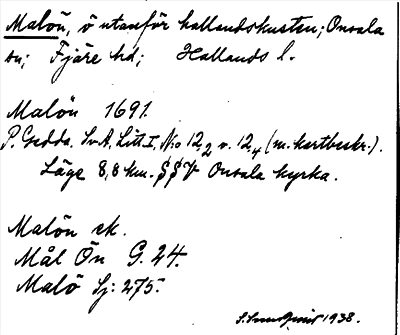 Malön, ö utanför hallandskusten; Onsala
sn; Fjäre hd; Hallands l.
Malön 1691.
P. Gedda. SvA, Litt I, No 12,2 o. 12,4 (m. kartbeskr.).
Läge 8,8 km. SSV Onsala kyrka.
Malön ek.
Mål Ön G. 24.
Malö Sj: 275.
1938.